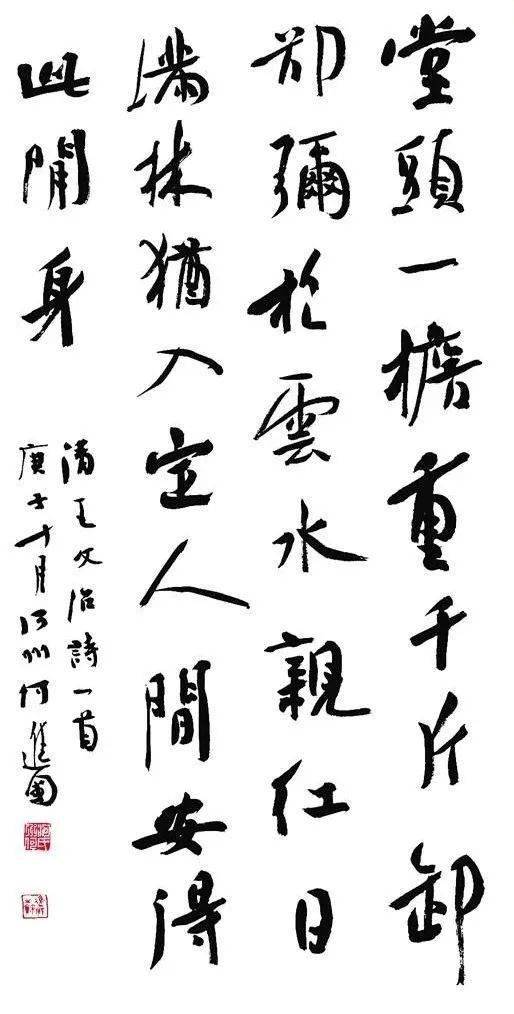 堂頭一擔重千斤卸
却彌於雲水親红日
滿林猶入定人間安得
此閒身
清王文治詩一首
庚子十月河州何進國